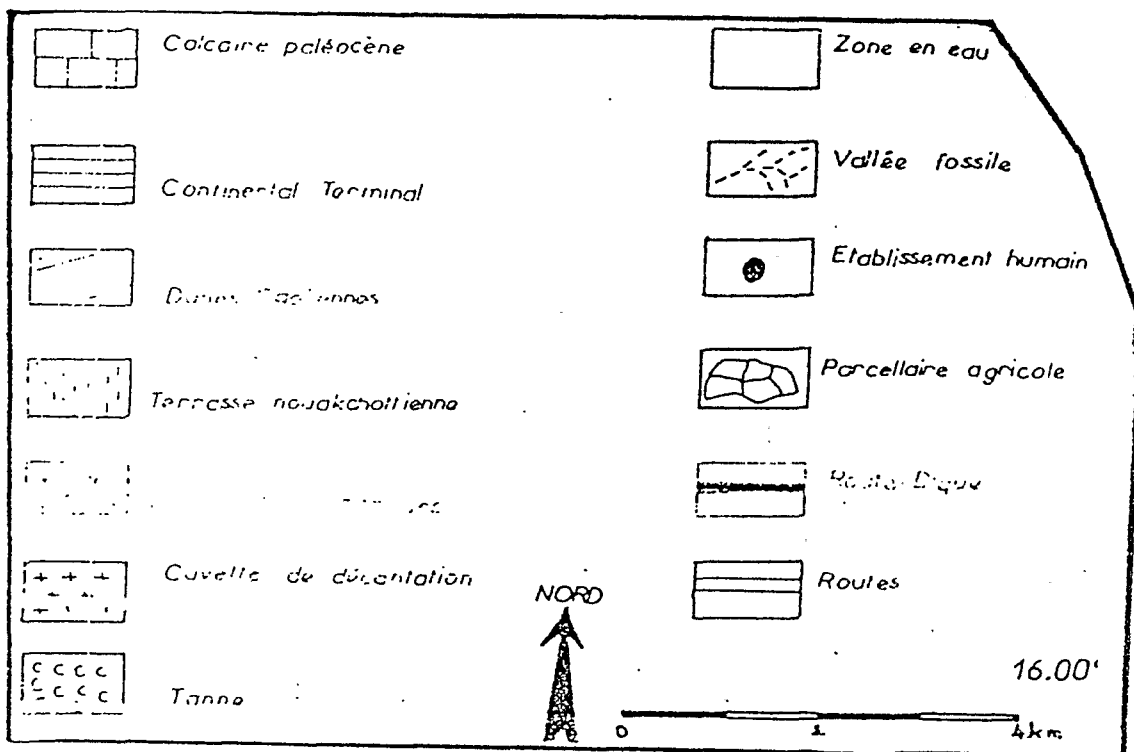 Calcaire paléocène
Continental Terminal
Dunes
Terrasse nouakchottienne
Cuvette de décantation
Tanne
Zone en eau
Vallée fossile
Etablissement humain
Parcellaire agricole
Route-Digue
Routes
NORD
16.00'
0 4 km